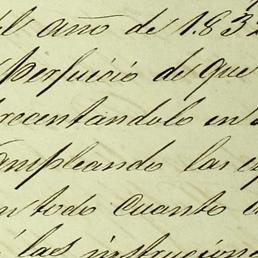 el año de 1.832
perjuicio de que
recentandolo en
empleando las es
en todo cuanto
las instruccione